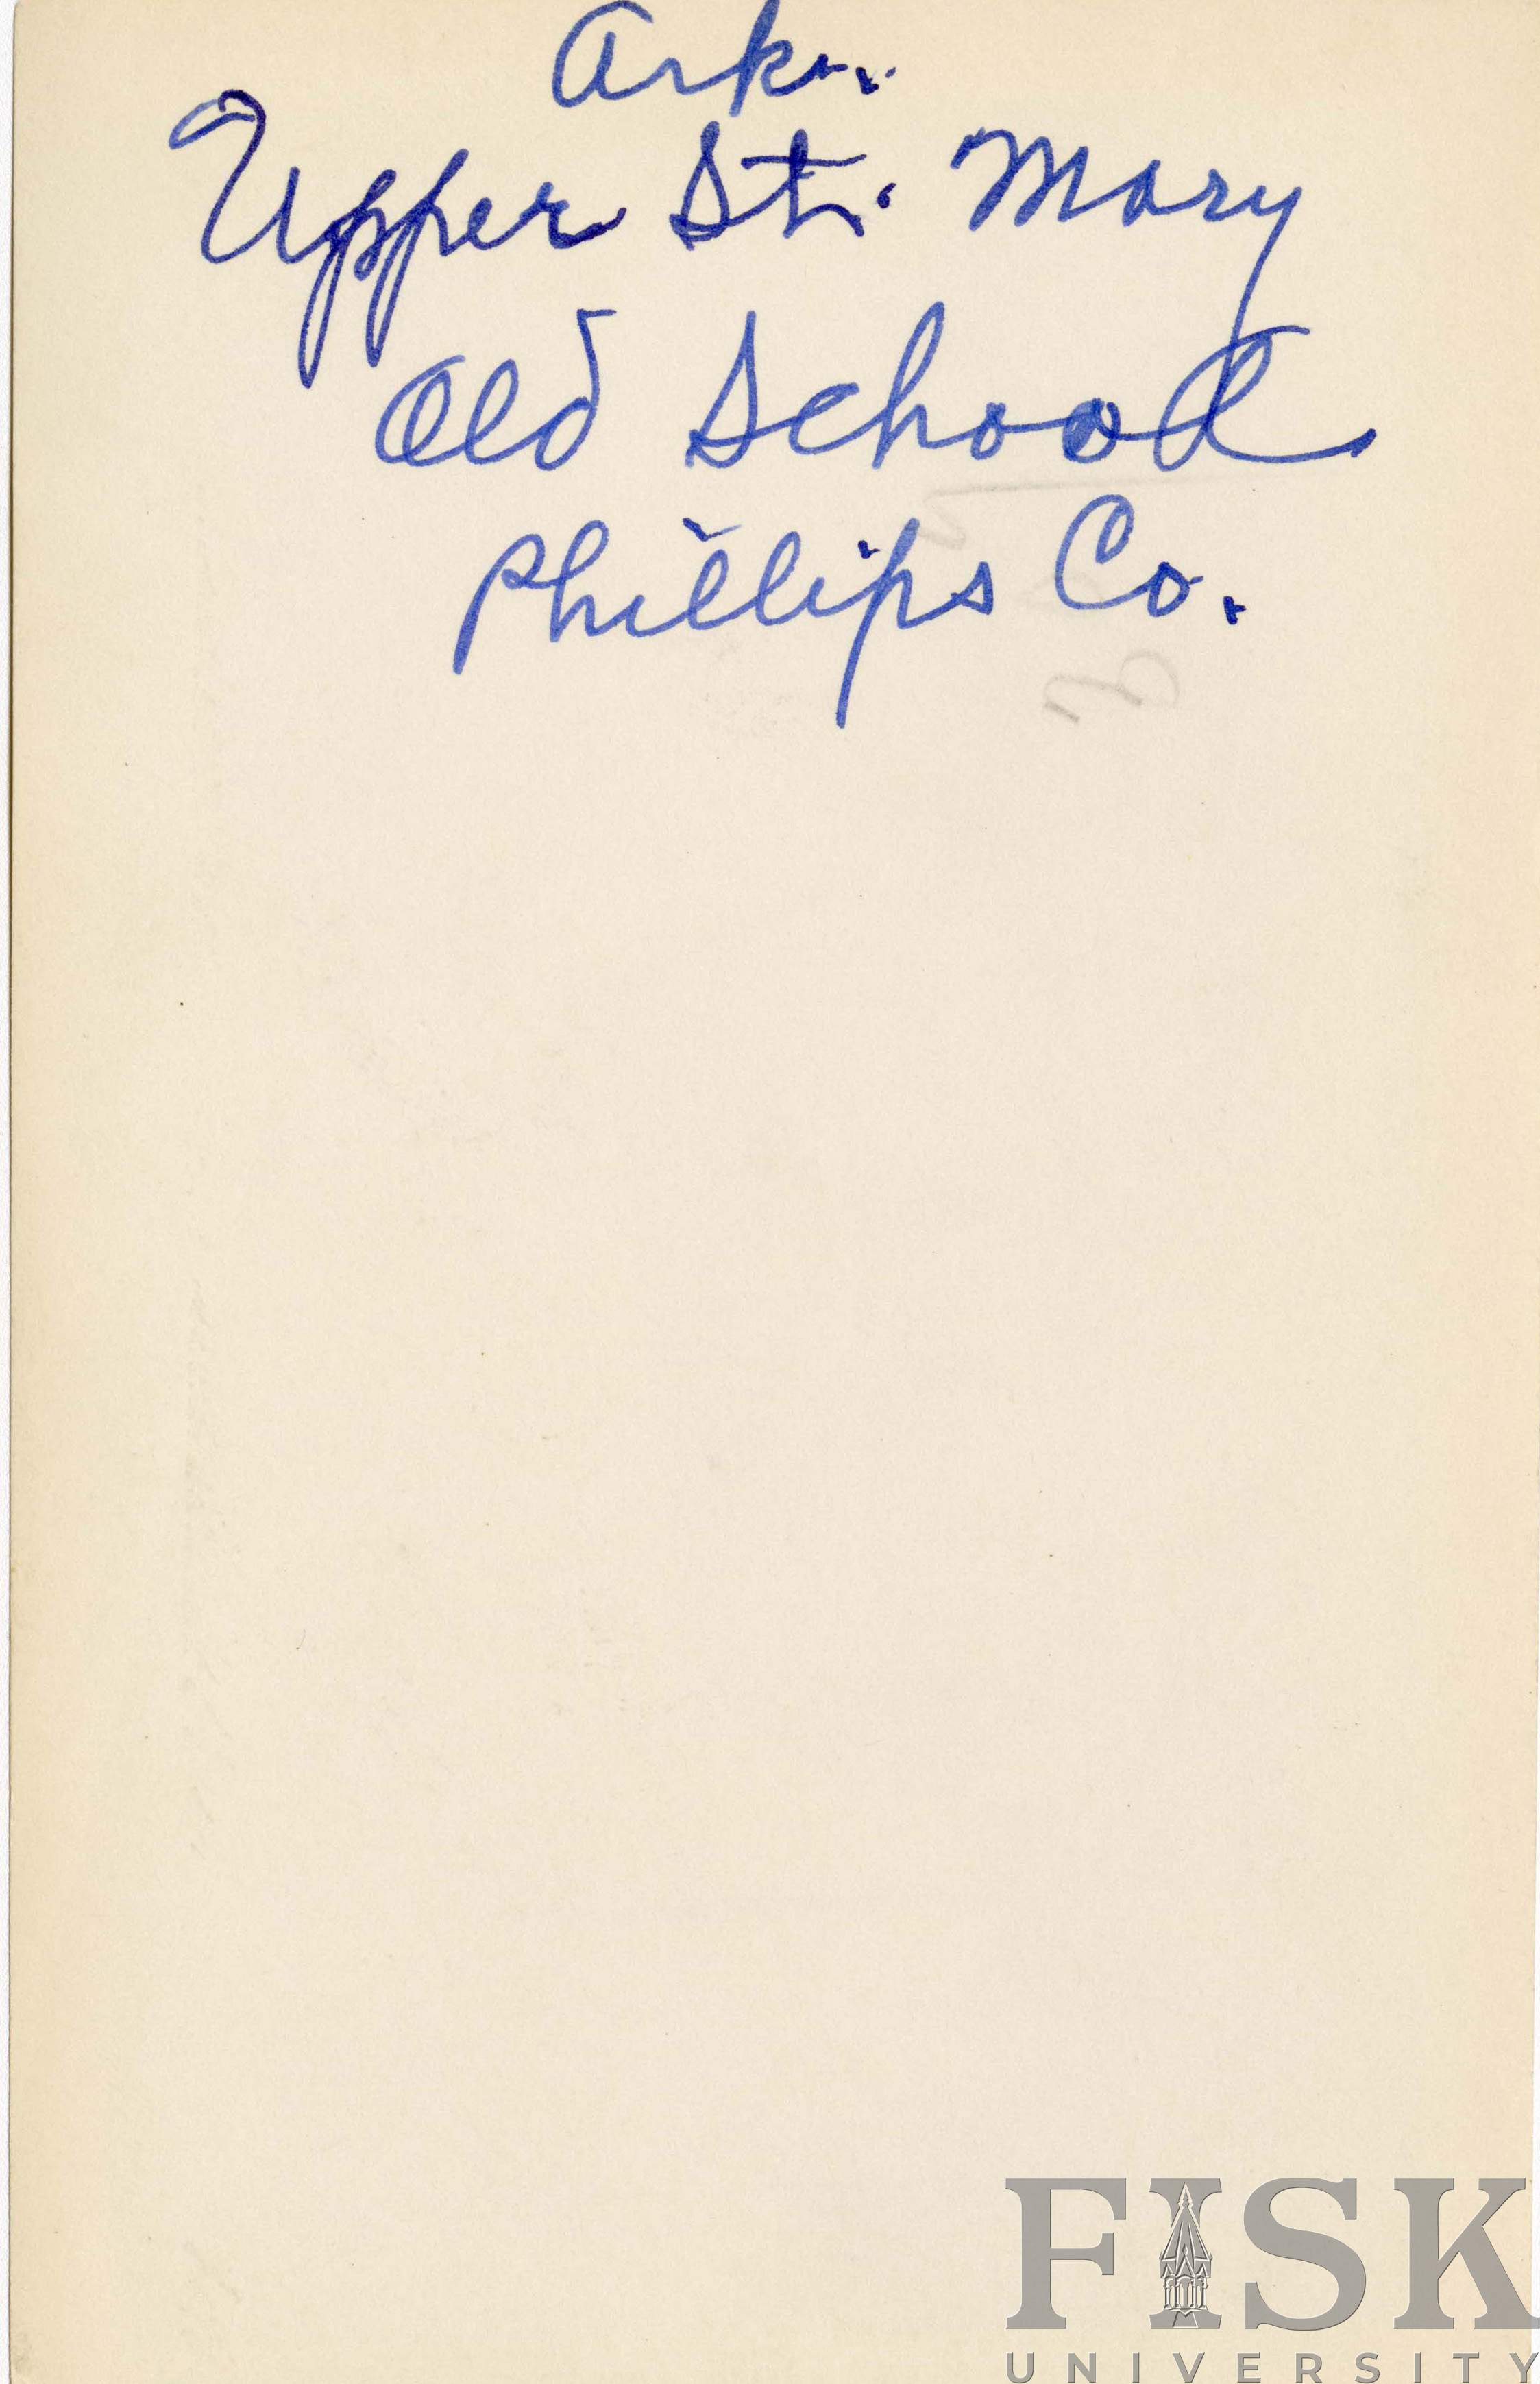 Ark.
Upper St. Mary
Old School
Phillips Co.
FISK
UNIVERSITY